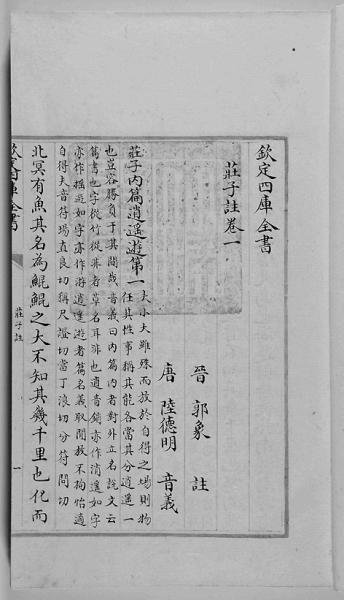 欽定四庫全書
莊子註卷一
晉 郭象 註
唐 陸德明 音義
莊子内篇逍遥遊第一
大小大雖殊而放於自得之場則物
任其性事稱其能各當其分逍遥一
也豈容勝負于其間哉音義曰内篇内者對外立名說文云
篇書也字從竹從艸者草名耳非也逍音銷亦作消遥如字
亦作揺遊如字亦作游逍遥遊者篇名義取閒放不拘怡適
自得夫音符場直良切稱尺證切當丁浪切分符問切
北冥有魚其名為鯤鯤之大不知其幾千里也化而
莊子註
一